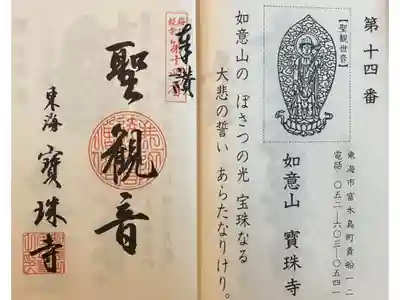 第十四番
【聖観世音】
東海市富木島町貴船一
電話 〇五二―六〇三―〇五
如意山 寶珠寺
如意山の ぼさつの光 宝珠なる
大悲の誓い あらたなりけり。
奉讃
聖観音
東海 寳珠寺